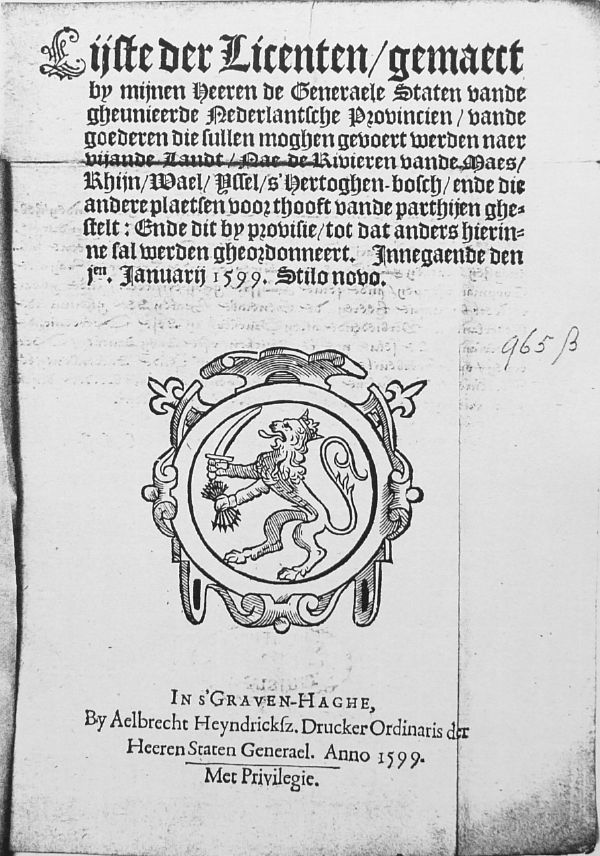 Lijste der Licenten / gemaect
by mijnen Heeren de Generaele Staten vande
gheunieerde Nederlantsche Provincien / vande
goederen die sullen moghen gevoert werden naer
vijande Landt / Nae de Rivieren vande Maes /
Rhijn / Wael / Yssel / s'Hertoghen-bosch / ende die
andere plaetsen voor thooft vande parthijen ghe-
stelt : Ende dit by provisie / tot dat anders hierin-
ne sal werden gheordonneert. Innegaende den
jen. Januarij 1599. Stilo novo.
965 β
IN S'GRAVEN-HAGHE,
By Aelbrecht Heyndricksz. Drucker Ordinaris der
Heeren Staten Generael. Anno 1599.
Met Privilegie.